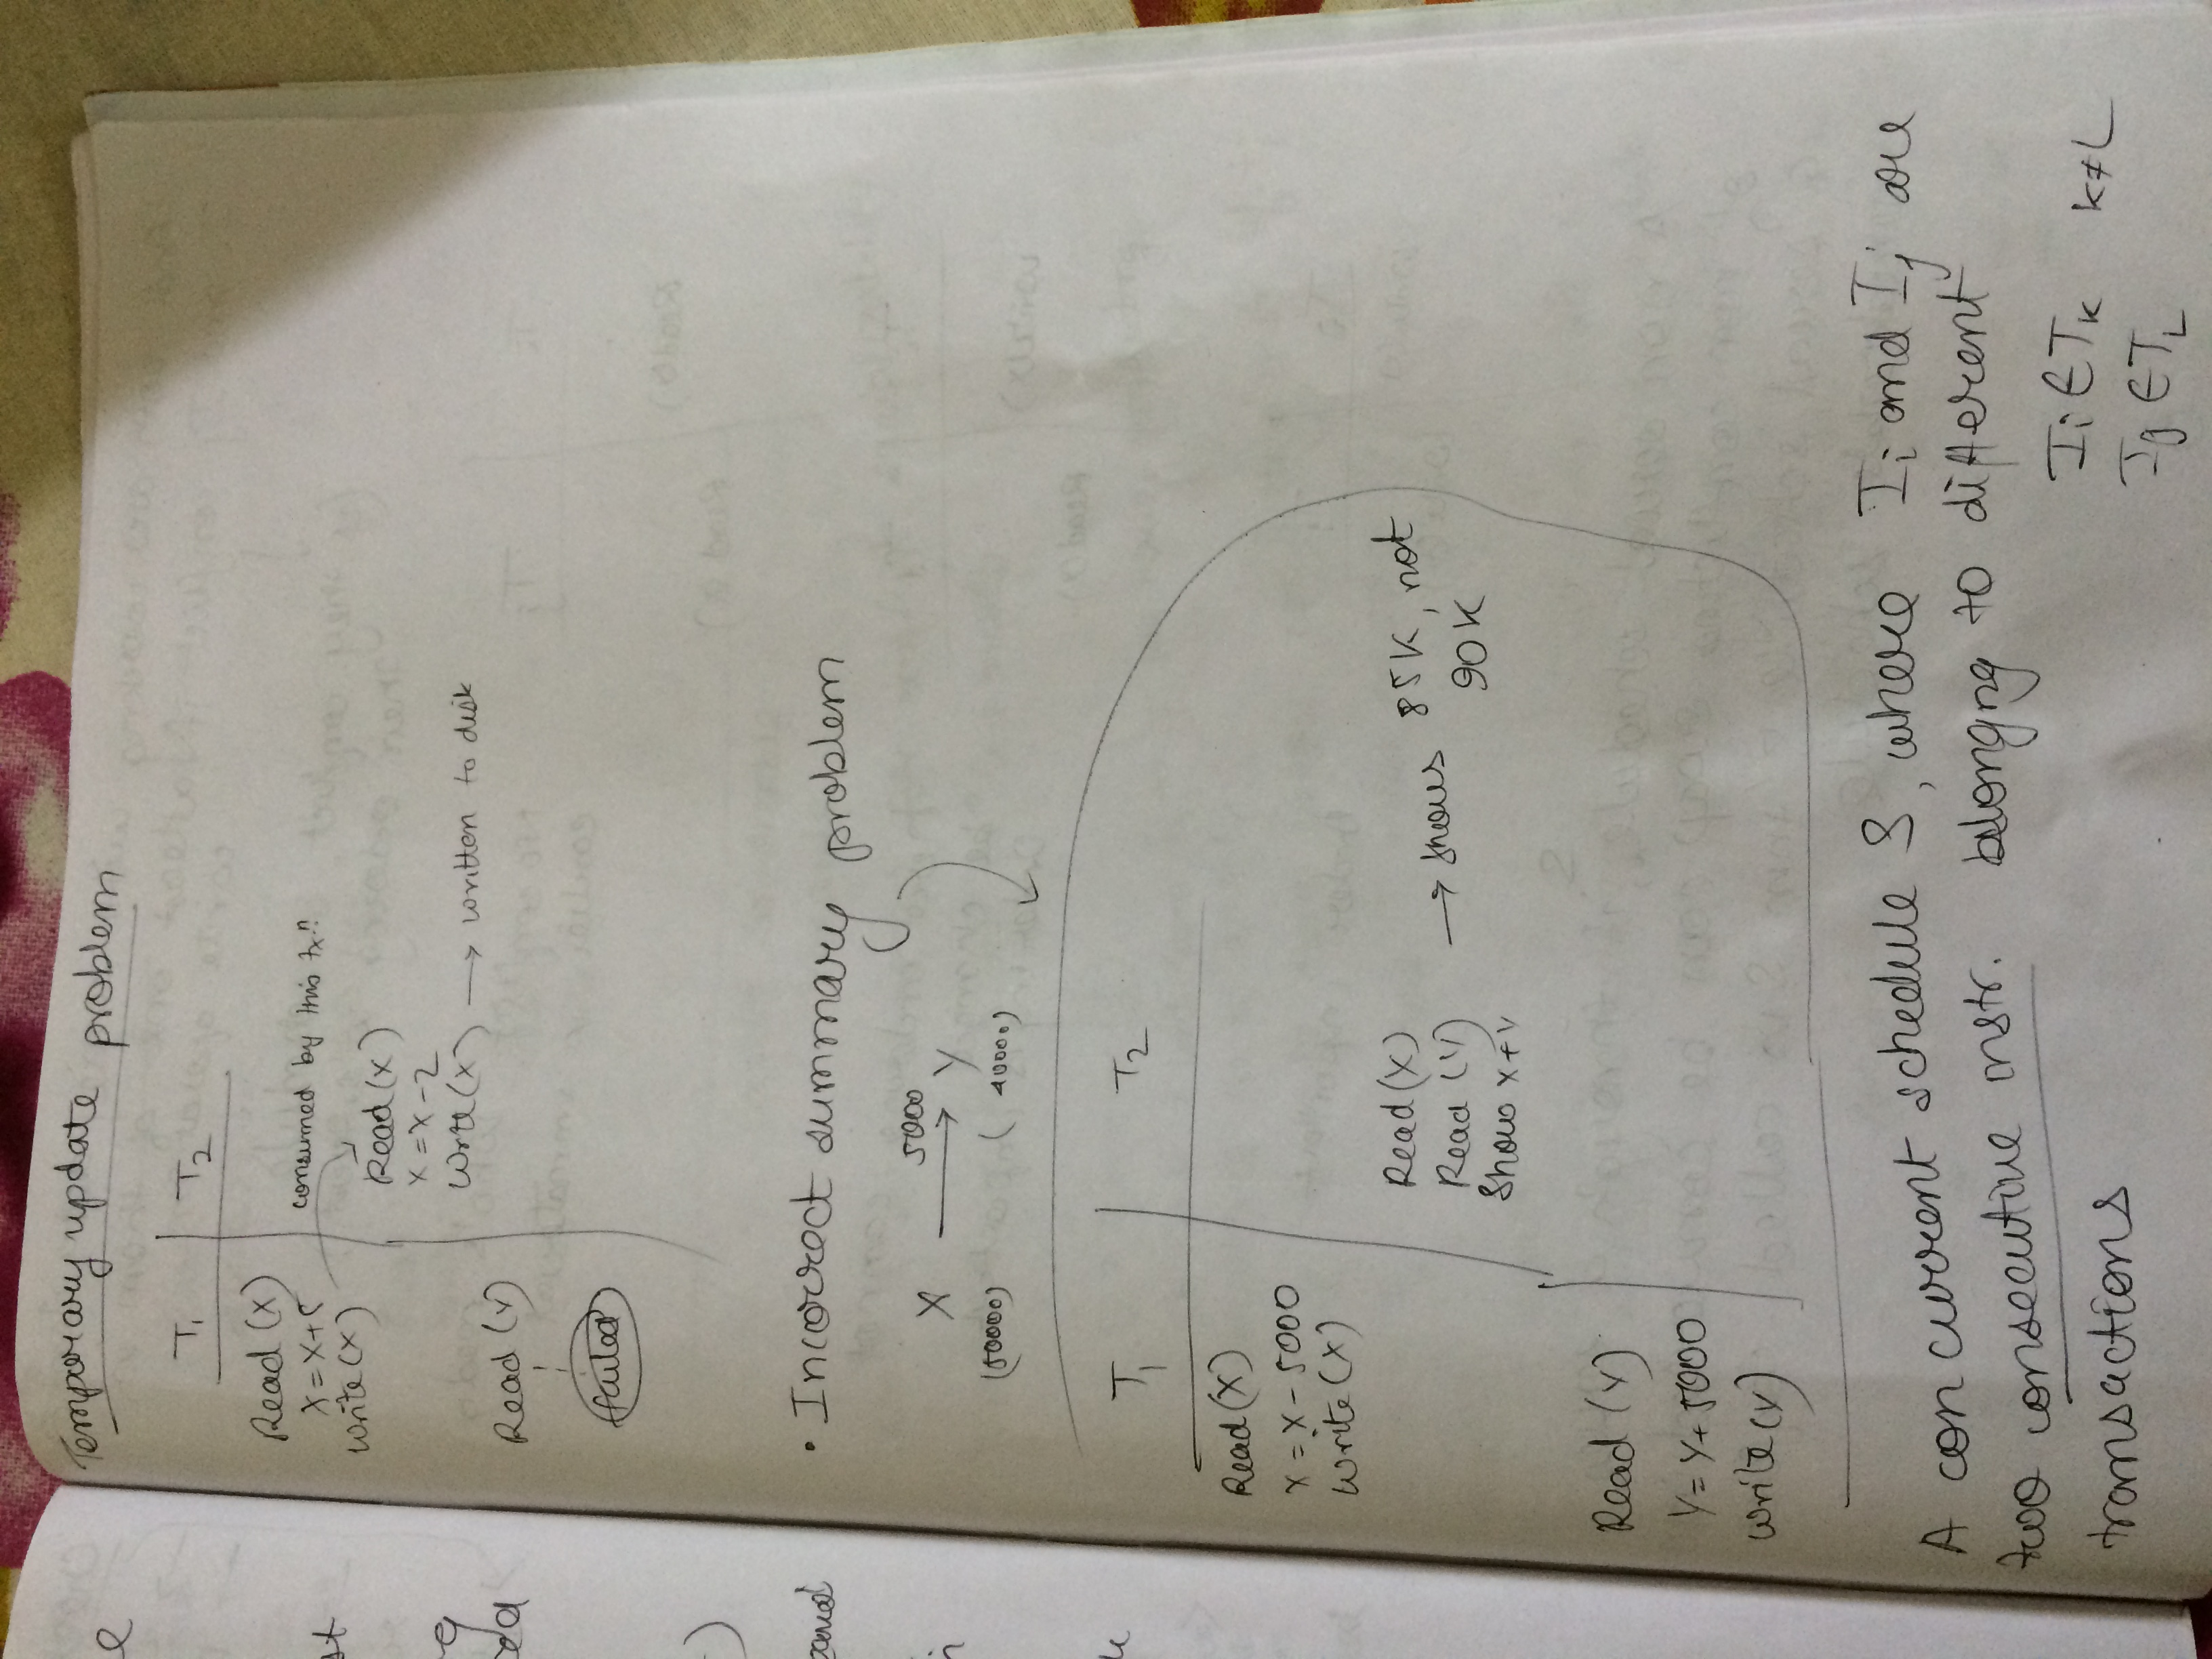 Temporary update problem
T1 T2
Read (X)
X = X+5
Write (X)
consumed by this txn
Read (X)
X = X - 2
Write (X) → written to disk
Read (Y)
failed
• Incorrect summary problem
5000
X → Y
(50000) (40000)
T1 T2
Read (X)
X = X - 5000
Write (X)
Read (X)
Read (Y) → shows 85K, not
90K
Show X+Y
Read (Y)
Y = Y + 5000
Write (Y)
A concurrent schedule S, where Ii and Ij are
two consecutive instr. belongng to different
transactions
Ii ∈ TK K ≠ L
Ij ∈ TL